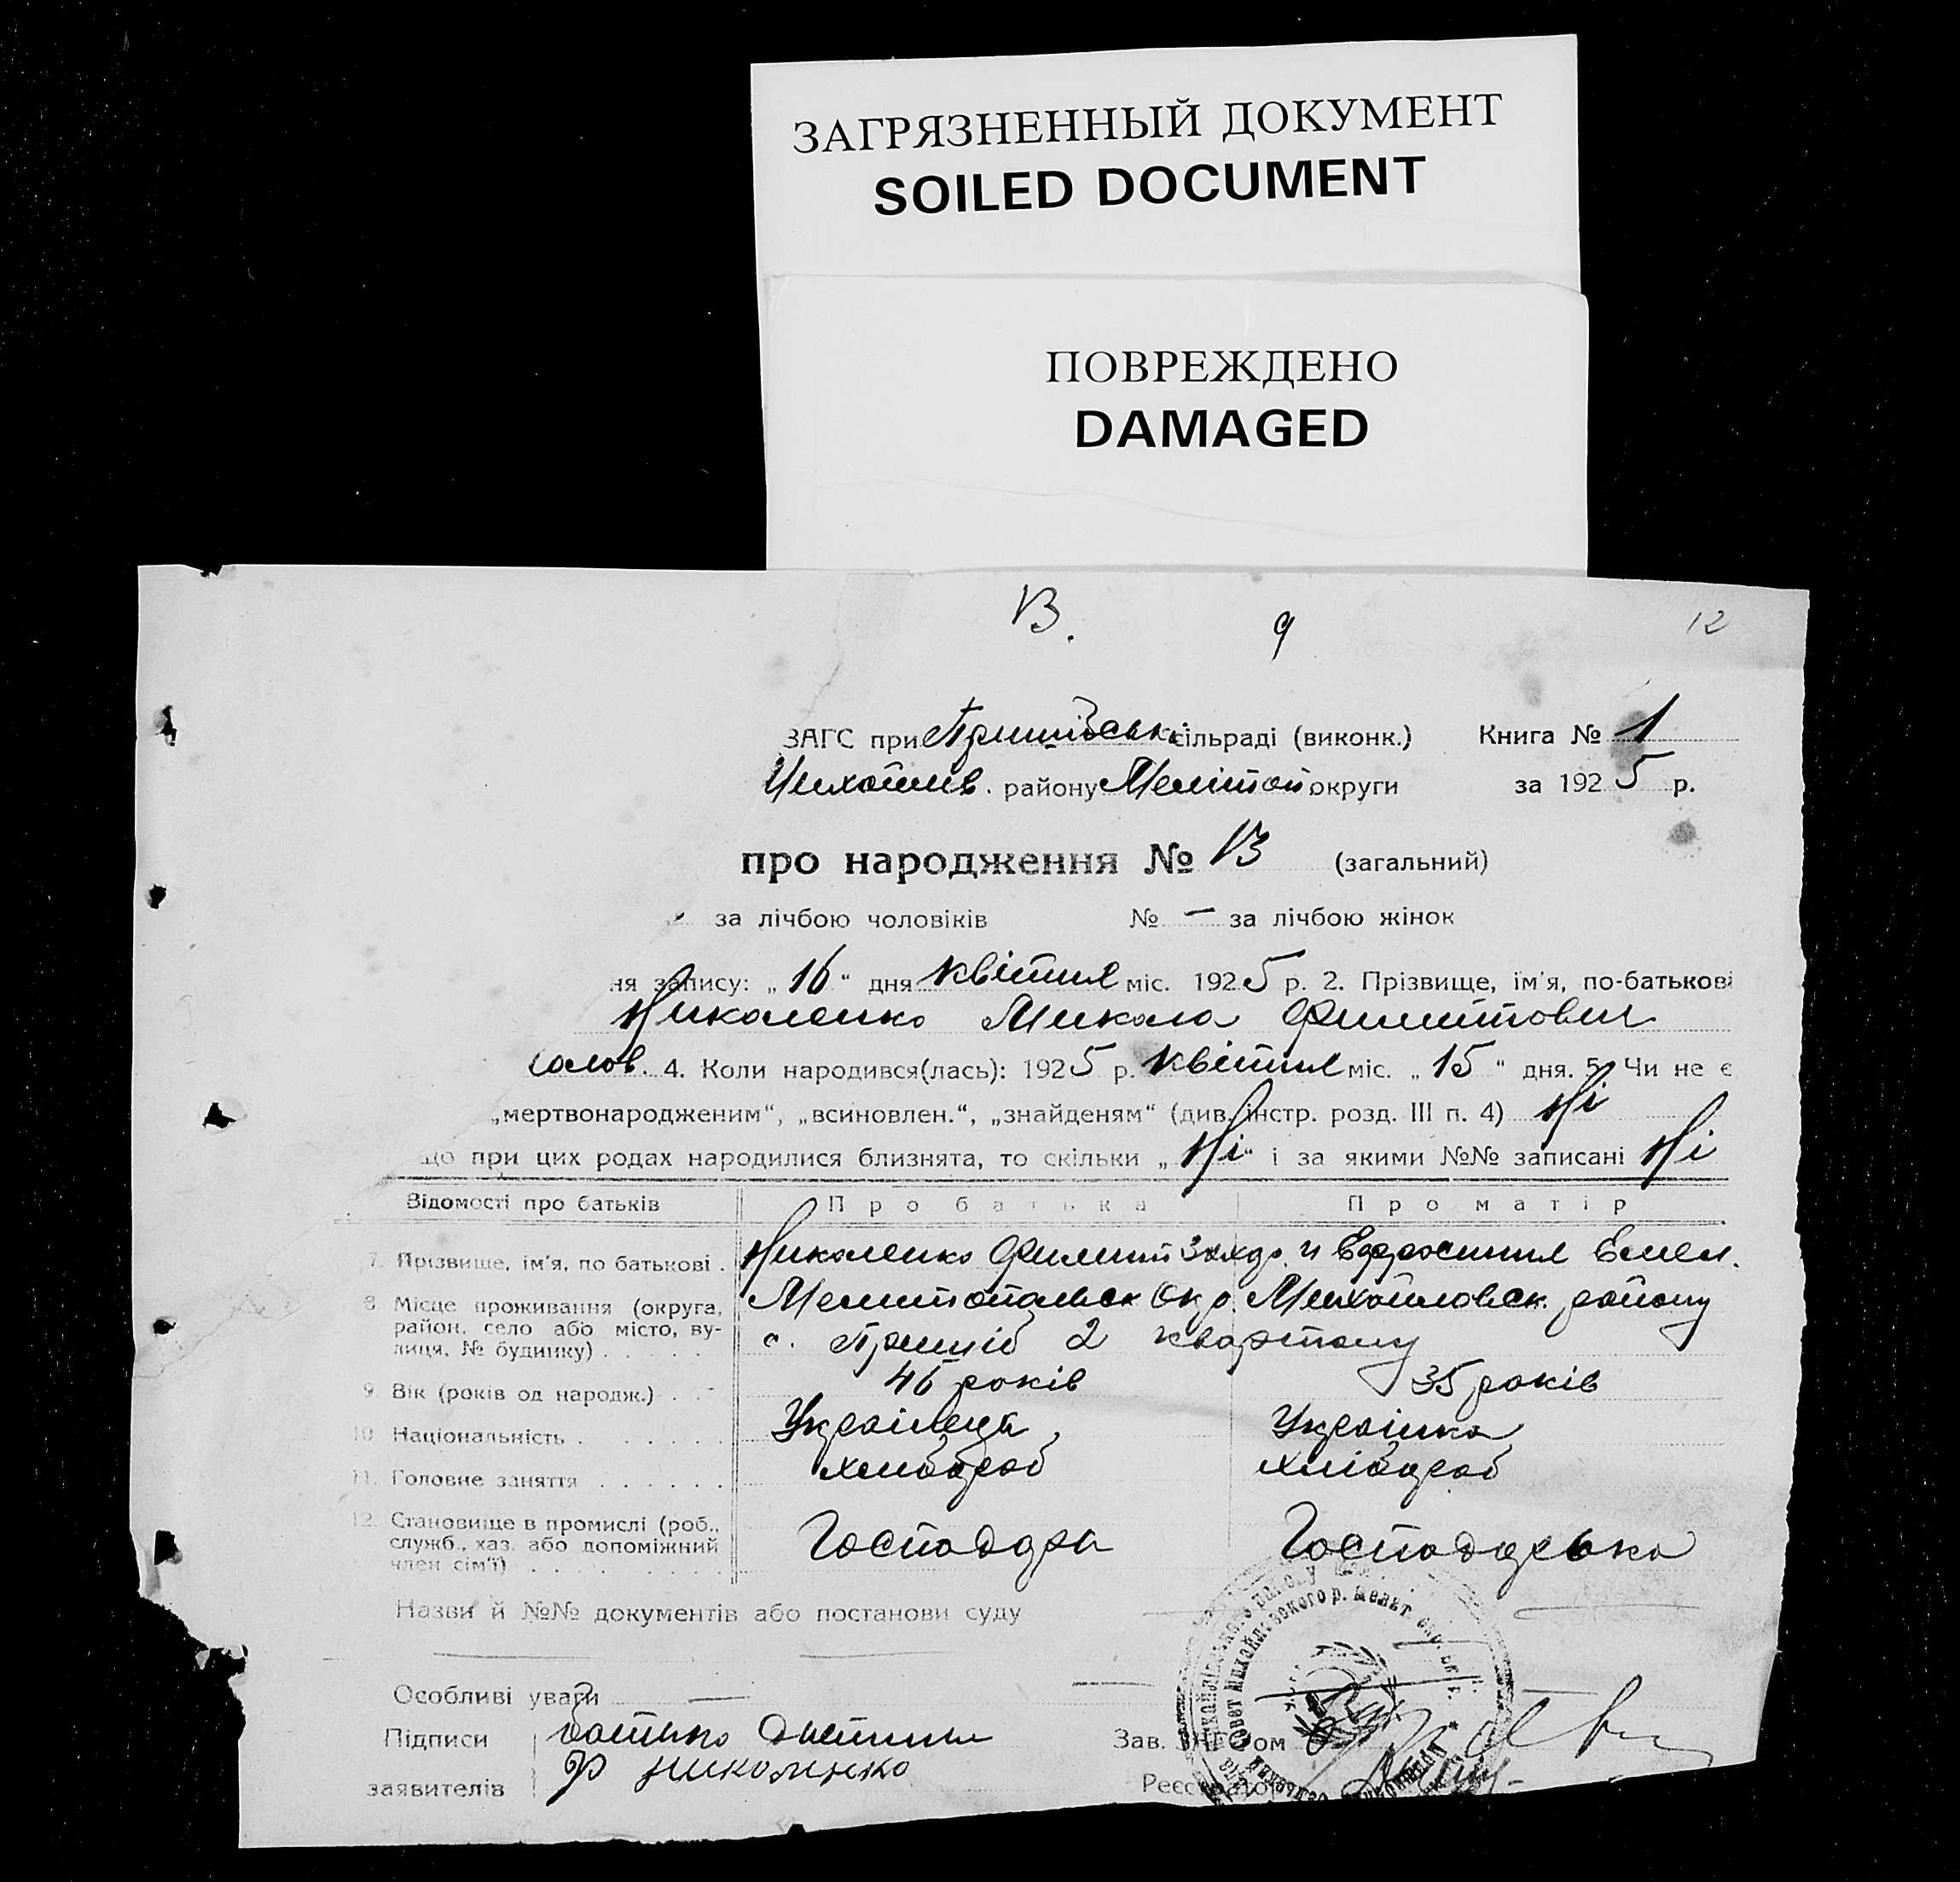 ЗАГРЯЗНЕННЫЙ ДОКУМЕНТ
SOILED DOCUMENT
ПОВРЕЖДЕНО
DAMAGED
13.
9
12
ЗАГС при сільраді (виконк.) Книга № 1
району Мелітоп округи за 1925 р.
про народження № 13 (загальний)
за лічбою чоловіків № — за лічбою жінок
ня запису: „16“ дня квітня міс. 1925 р. 2. Прізвище, ім'я, по-батькові
Николенко Микола Филиптович
4. Коли народився(лась): 1925 р. квітня міс. „15“ дня. 5. Чи не є
„мертвонародженим“, „всиновлен.“, „знайденям“ (див. інстр. розд. III п. 4) Ні
що при цих родах народилися близнята, то скільки „Ні“ і за якими №№ записані Ні
Відомості про батьків Про батька Про матір
7. Прізвище, ім'я, по батькові . Николенко Филип и Ефросиния Емел.
8. Місце проживання (округа, район, село або місто, вулиця, № будинку) Мелитопольск Окр. Михайловск. району
с. Пришиб 2 кварталу
9. Вік (років од народж.) 46 років 35 років
10. Національність Українець Українка
11. Головне заняття хлібороб хлібороб
12. Становище в промислі (роб., служб., хаз. або допоміжний член сім'ї) Господарь Господарька
Назви й №№ документів або постанови суду
Особливі уваги —
Підписи батько дитини
заявителів Ф Николенко
Зав. ЗАГСом
Реєстратор